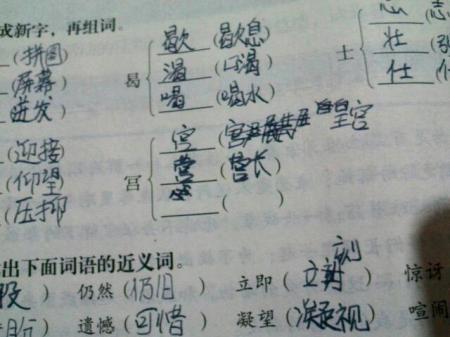 成新字，再组词。
(拼图 歇(歇息) 志(志
(屏幕) 曷 渴(口渴) 士 壮
(迸发) 喝(喝水) 仕
(迎接 宫(皇宫
(仰望) 宫 营(营长)
(压抑 ( )
出下面词语的近义词。
仍然(仍旧) 立即(立刻 惊讶
遗憾(可惜) 凝望(凝视) 喧闹